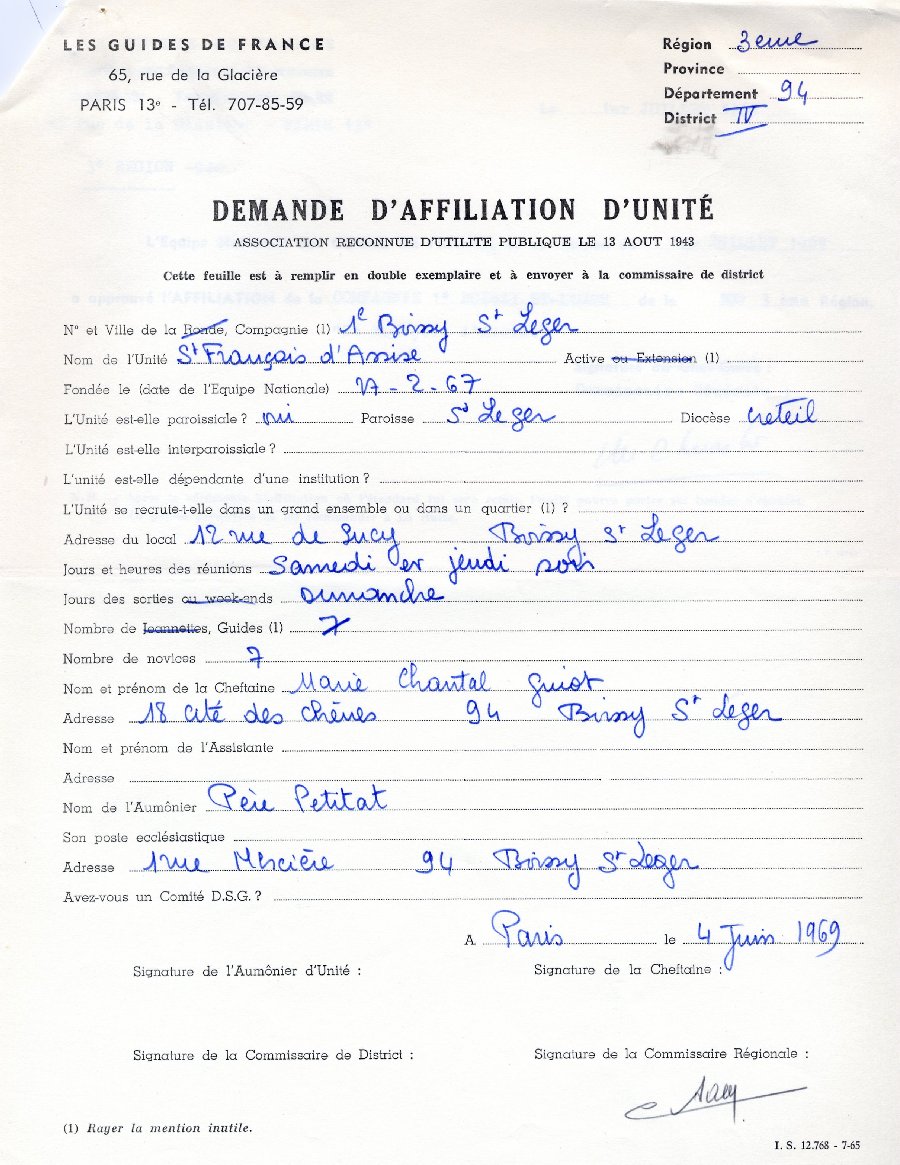 LES GUIDES DE FRANCE
65, rue de la Glacière
PARIS 13e - Tél. 707-85-59
Région 3eme
Province
Département 94
District IV
DEMANDE D'AFFILIATION D'UNITÉ
ASSOCIATION RECONNUE D'UTILITE PUBLIQUE LE 13 AOUT 1943
Cette feuille est à remplir en double exemplaire et à envoyer à la commissaire de district
N° et Ville de la Ronde, Compagnie (1) 1e Boissy St Leger
Nom de l'Unité St François d'Assise Active ou Extension (1)
Fondée le (date de l'Equipe Nationale) 17-2-67
L'Unité est-elle paroissiale ? oui Paroisse St Leger Diocèse Creteil
L'Unité est-elle interparoissiale ?
L'unité est-elle dépendante d'une institution ?
L'Unité se recrute-t-elle dans un grand ensemble ou dans un quartier (1) ?
Adresse du local 12 rue de Sucy Boissy St Leger
Jours et heures des réunions Samedi et jeudi soir
Jours des sorties ou week-ends Dimanche
Nombre de Jeannettes, Guides (1) 7
Nombre de novices 7
Nom et prénom de la Cheftaine Marie Chantal Guiot
Adresse 18 cité des chênes 94 Boissy St Leger
Nom et prénom de l'Assistante
Adresse
Nom de l'Aumônier Père Petitat
Son poste ecclésiastique
Adresse 1 rue Mercière 94 Boissy St Leger
Avez-vous un Comité D.S.G. ?
A Paris le 4 Juin 1969
Signature de l'Aumônier d'Unité : Signature de la Cheftaine :
Signature de la Commissaire de District : Signature de la Commissaire Régionale :
(1) Rayer la mention inutile.
I. S. 12.768 - 7-65